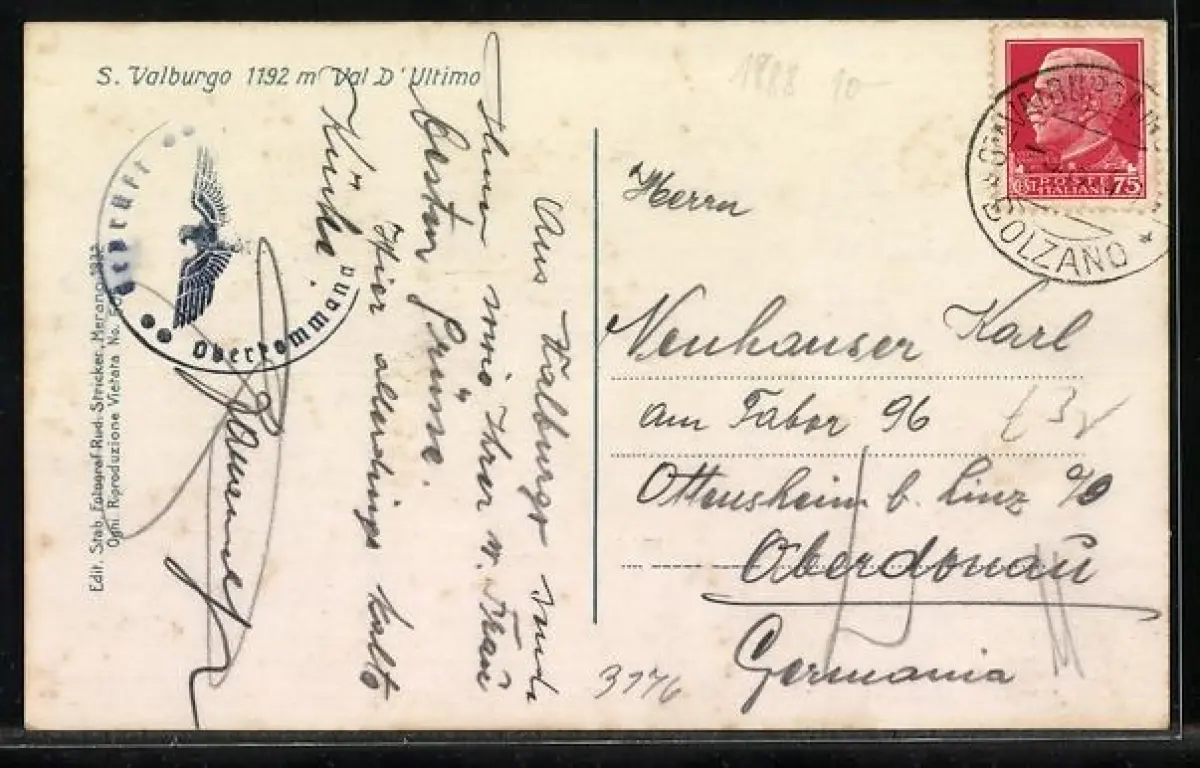 S. Valburgo 1192 m Val D'Ultimo
Edit. Stab. Fotograf Rud. Stricker, Merano 1932
Ogni Riproduzione Vietata No.
Geprüft
Oberkommand
Aus Valburgo sende
Ihnen sowie Ihrer w. Frau
besten Grüsse.
Hier allerdings kalte
Küche
1888 10-
POSTE
ITALIANE
75
S. VALBURGO
BOLZANO
Herrn
Neuhauser Karl
am Tabor 96
Ottensheim b. Linz a/D
Oberdonau
Germania
3776